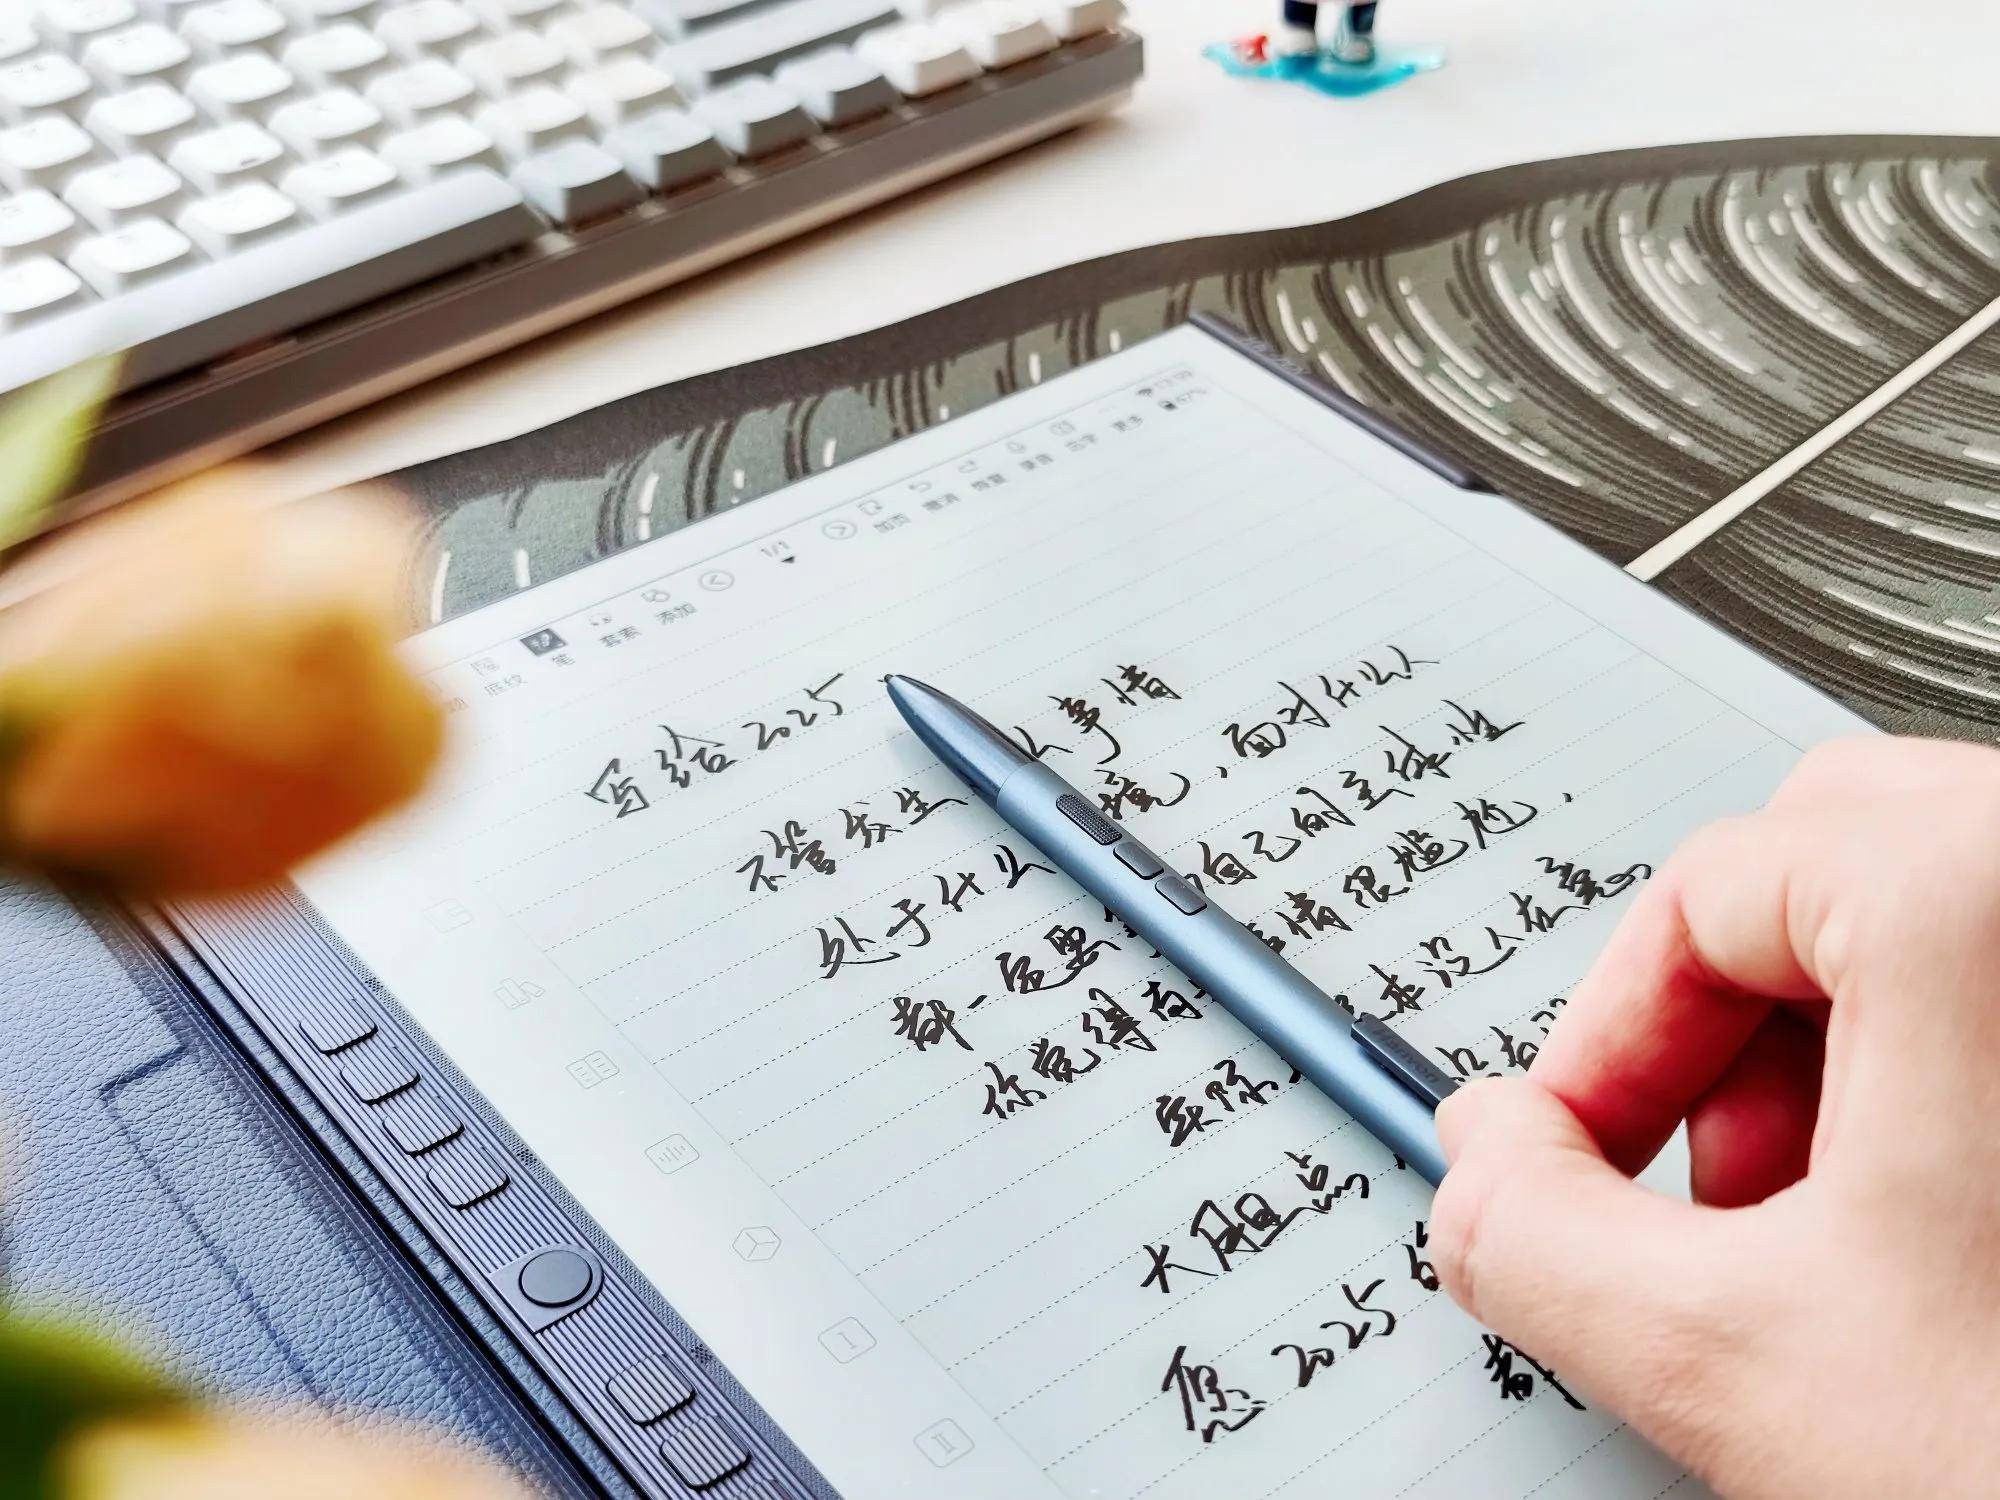 1/1
底纹 笔 套索 添加 加页 撤消 恢复 录音 出字 更多
67%
写给2025
不管发生 么事情
处于什么 境，面对什么人
都一定要 自己的主体性
你觉得有 事情很尴尬，
实际 本没人在意的
大胆点
愿2025
都